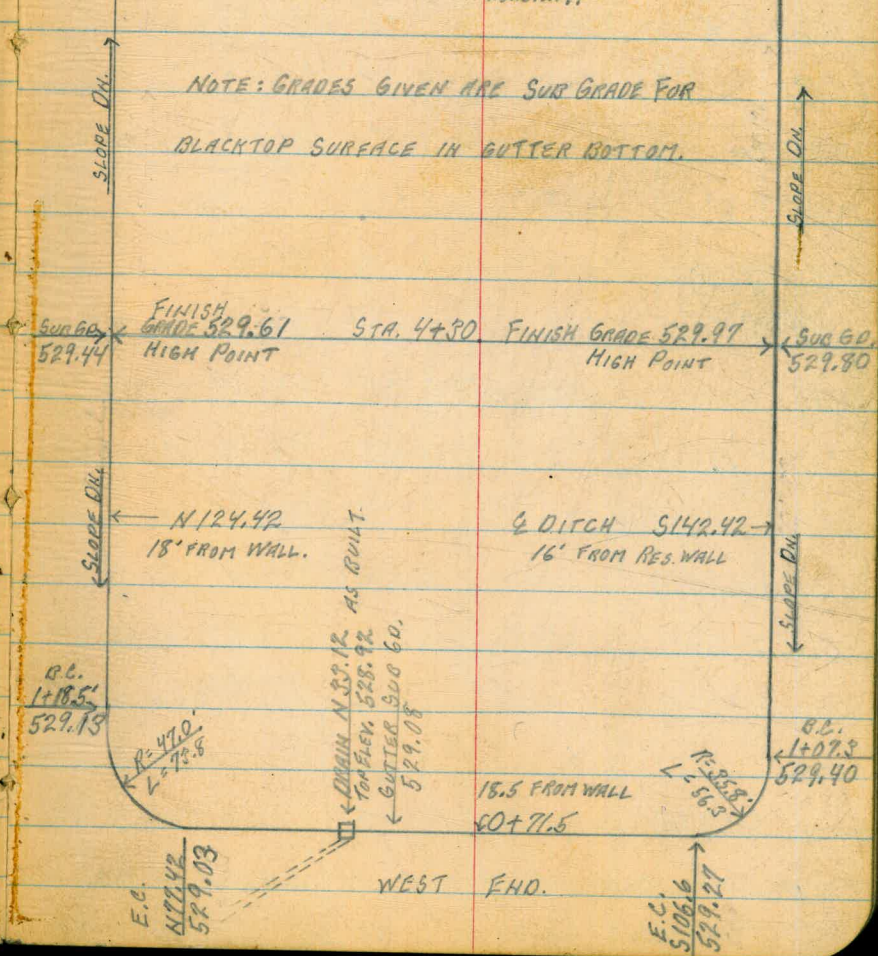 SLOPE DN.
NOTE: GRADES GIVEN ARE SUB GRADE FOR
BLACKTOP SURFACE IN GUTTER BOTTOM.
SLOPE DN.
SUB GD.
529.44
FINISH
GRADE 529.61
HIGH POINT
STA. 4+30
FINISH GRADE 529.97
HIGH POINT
SUB GD.
529.80
SLOPE DN.
N 124.42
18' FROM WALL.
℄ DITCH S142.42
16' FROM RES. WALL
SLOPE DN.
B.C.
1+18.5'
529.13
R=47.0'
L=73.8
DRAIN N 33.12 AS BUILT
TOP ELEV. 528.92
GUTTER SUB GD.
529.08
18.5 FROM WALL
0+71.5
R=35.8'
L=56.3
B.C.
1+07.3
529.40
E.C.
N77.42
529.03
WEST END.
E.C.
S106.6
529.27